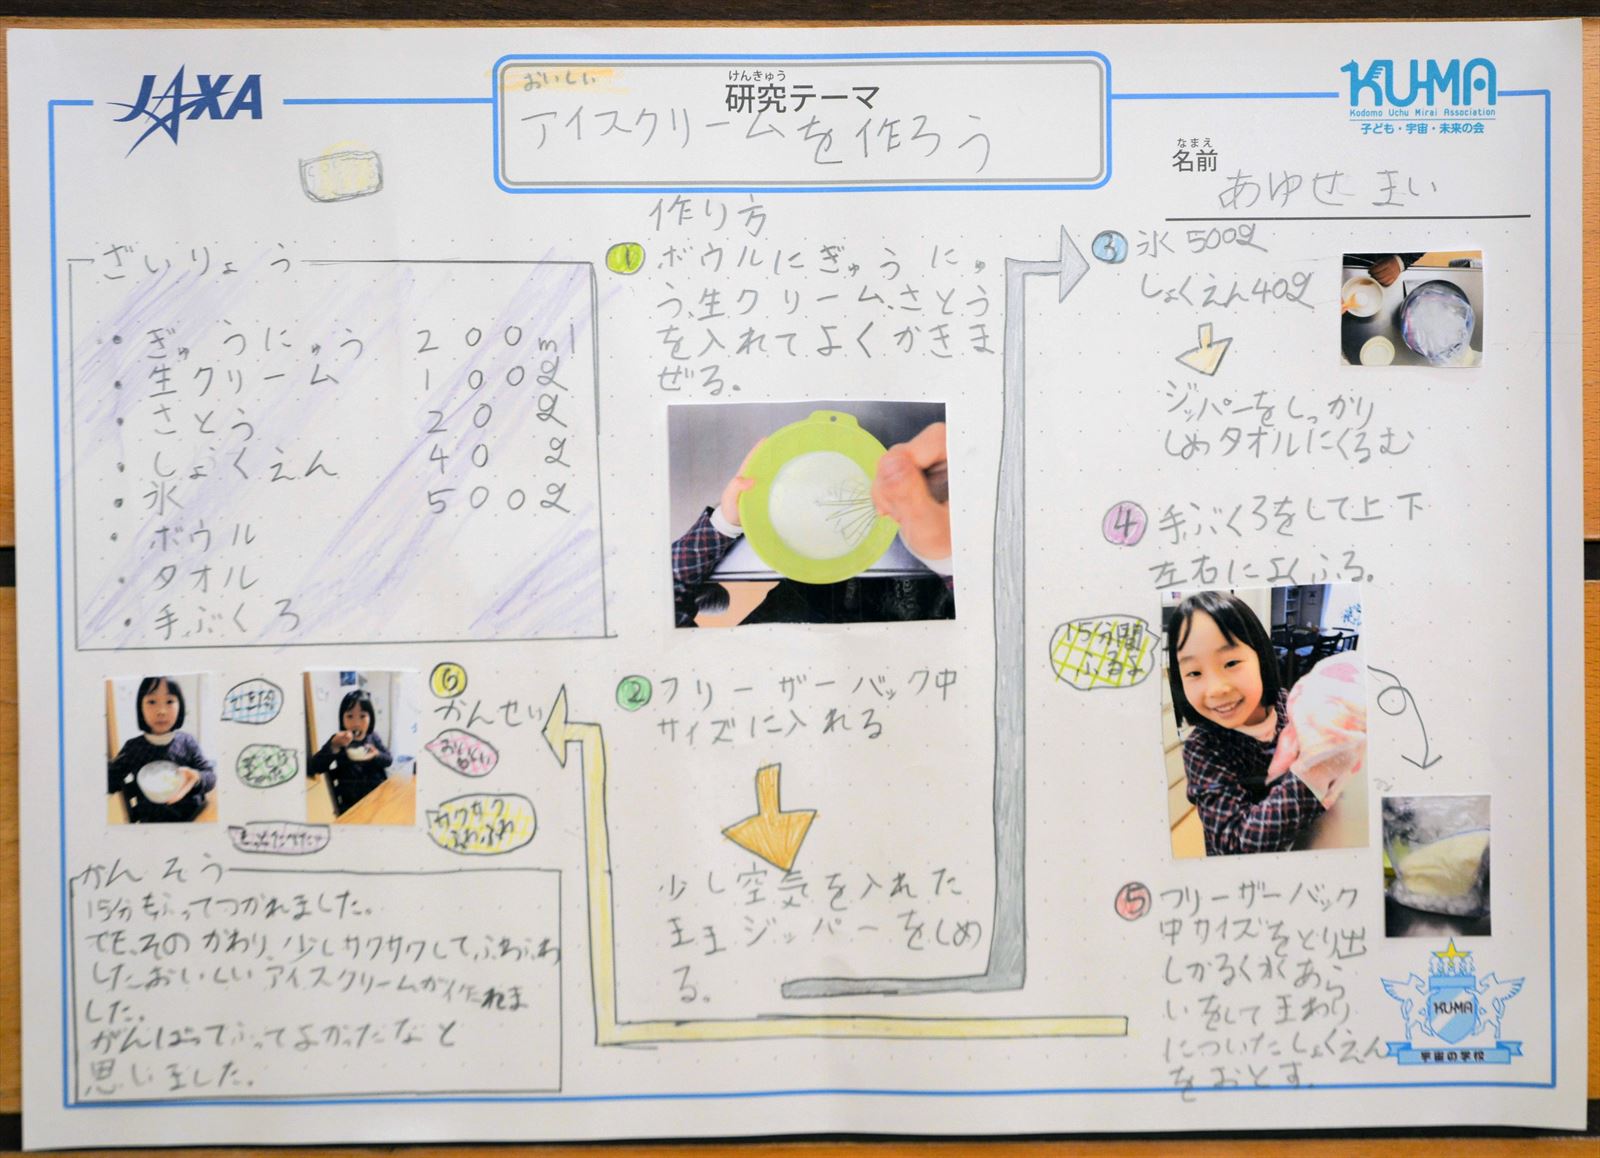 JAXA
おいしい
けんきゅう
研究テーマ
アイスクリームを作ろう
KU-MA
Kodomo Uchu Mirai Association
子ども・宇宙・未来の会
なまえ
名前
あゆせ まい
ざいりょう
・ぎゅうにゅう 200ml
・生クリーム 100g
・さとう 20g
・しょくえん 40g
・氷 500g
・ボウル
・タオル
・手ぶくろ
作り方
1 ボウルにぎゅうにゅ
う、生クリーム、さとう
を入れてよくかきま
ぜる。
2 フリーザーバック中
サイズに入れる
少し空気を入れた
ままジッパーをしめ
る。
3 氷500g
しょくえん40g
ジッパーをしっかり
しめタオルにくるむ
4 手ぶくろをして上下
左右によくふる。
15分間
ふるよ
5 フリーザーバック
中サイズをとり出
しかるく水あら
いをしてまわり
についたしょくえん
をおとす。
6
かんせい
おいしい
サクサク
ふわふわ
かんそう
15分もふってつかれました。
でも、そのかわり、少しサクサクして、ふわふわ
したおいしいアイスクリームが作れま
した。
がんばってふってよかったなと
思いました。
KU-MA
宇宙の学校